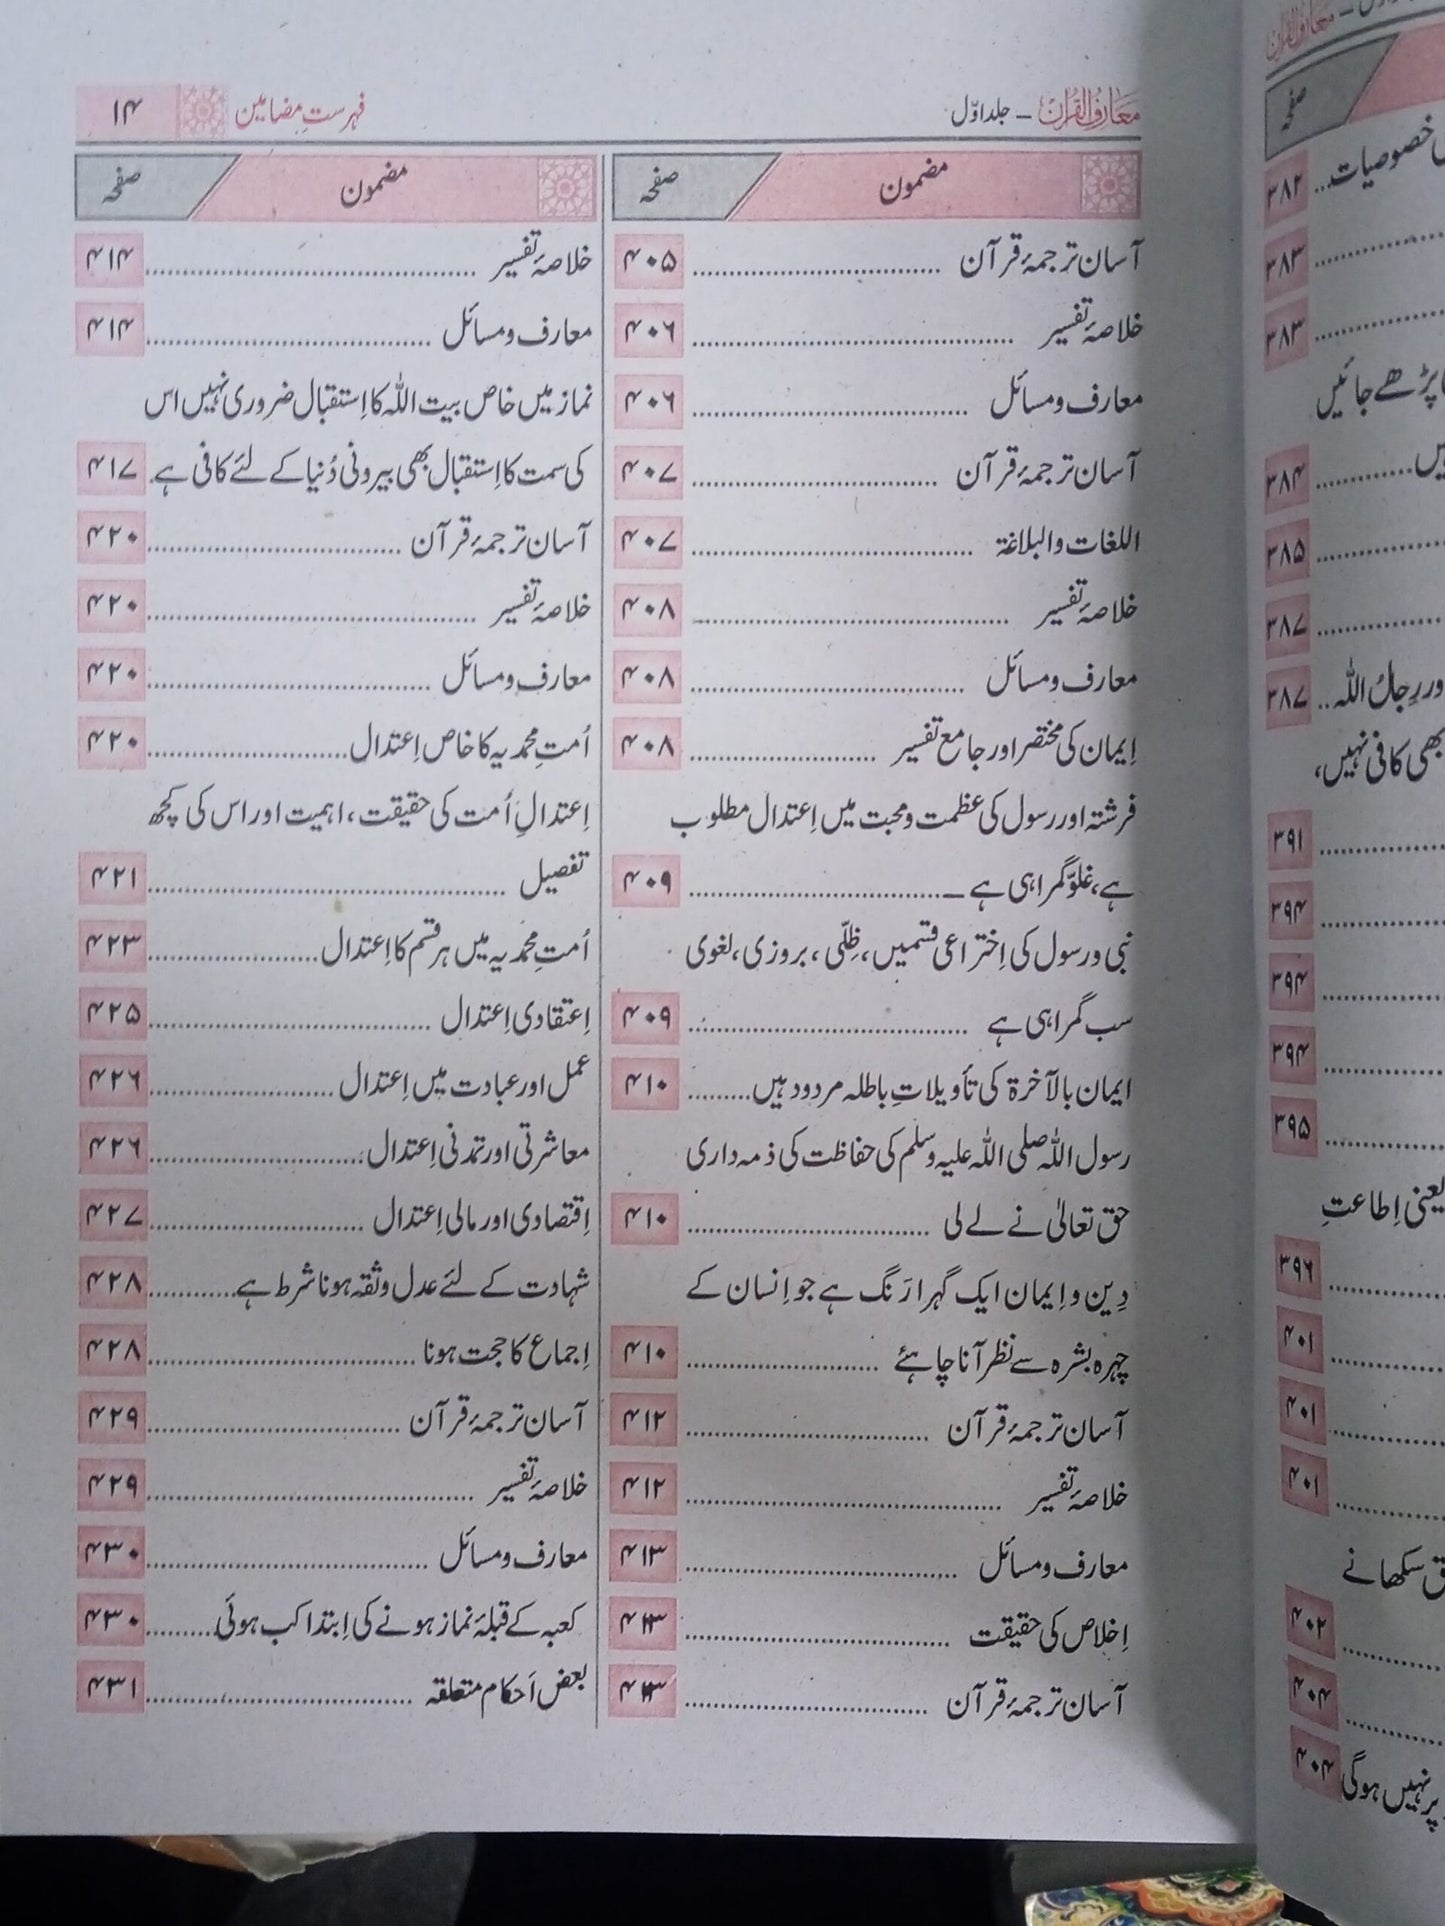 معارف القرآن – جلد اوّل
فہرستِ مضامین
۱۴
مضمون
صفحہ
آسان ترجمۂ قرآن ........ ۴۰۵
خلاصۂ تفسیر ........ ۴۰۶
معارف و مسائل ........ ۴۰۶
آسان ترجمۂ قرآن ........ ۴۰۷
اللغات والبلاغة ........ ۴۰۷
خلاصۂ تفسیر ........ ۴۰۸
معارف و مسائل ........ ۴۰۸
اِیمان کی مختصر اور جامع تفسیر ........ ۴۰۸
فرشتہ اور رسول کی عظمت و محبت میں اِعتدال مطلوب
ہے، غلوّ گمراہی ہے ـ ........ ۴۰۹
نبی و رسول کی اِختراعی قسمیں، ظِلّی، بروزی، لغوی
سب گمراہی ہے ........ ۴۰۹
ایمان بالآخرة کی تأویلاتِ باطلہ مردود ہیں ........ ۴۱۰
رسول اللہ صلی اللہ علیہ وسلم کی حفاظت کی ذمہ داری
حق تعالیٰ نے لے لی ........ ۴۱۰
دِین و اِیمان ایک گہرا رَنگ ہے جو اِنسان کے
چہرہ بشرہ سے نظر آنا چاہئے ........ ۴۱۰
آسان ترجمۂ قرآن ........ ۴۱۲
خلاصۂ تفسیر ........ ۴۱۲
معارف و مسائل ........ ۴۱۳
اِخلاص کی حقیقت ........ ۴۱۳
آسان ترجمۂ قرآن ........ ۴۱۳
مضمون
صفحہ
خلاصۂ تفسیر ........ ۴۱۴
معارف و مسائل ........ ۴۱۴
نماز میں خاص بیت اللہ کا اِستقبال ضروری نہیں اس
کی سمت کا اِستقبال بھی بیرونی دُنیا کے لئے کافی ہے. ۴۱۷
آسان ترجمۂ قرآن ........ ۴۲۰
خلاصۂ تفسیر ........ ۴۲۰
معارف و مسائل ........ ۴۲۰
اُمتِ محمدیہ کا خاص اِعتدال ........ ۴۲۰
اِعتدالِ اُمت کی حقیقت، اہمیت اور اس کی کچھ
تفصیل ........ ۴۲۱
اُمتِ محمدیہ میں ہر قسم کا اِعتدال ........ ۴۲۳
اِعتقادی اِعتدال ........ ۴۲۵
عمل اور عبادت میں اِعتدال ........ ۴۲۶
معاشرتی اور تمدنی اِعتدال ........ ۴۲۶
اِقتصادی اور مالی اِعتدال ........ ۴۲۷
شہادت کے لئے عدل و ثقہ ہونا شرط ہے ........ ۴۲۸
اِجماع کا حجت ہونا ........ ۴۲۸
آسان ترجمۂ قرآن ........ ۴۲۹
خلاصۂ تفسیر ........ ۴۲۹
معارف و مسائل ........ ۴۳۰
کعبہ کے قبلۂ نماز ہونے کی اِبتدا کب ہوئی ........ ۴۳۰
بعض اَحکام متعلقہ ........ ۴۳۱
معارف القرآن –
صفحہ
خصوصیات .. ۳۸۲
۳۸۳
۳۸۳
پڑھے جائیں
۳۸۴
۳۸۵
۳۸۷
رِجالُ اللہ .. ۳۸۷
بھی کافی نہیں،
۳۹۱
۳۹۴
۳۹۴
۳۹۴
۳۹۵
یعنی اِطاعتِ
۳۹۶
۴۰۱
۴۰۱
۴۰۱
سکھانے
۴۰۲
۴۰۴
پر نہیں ہوگی ۴۰۴